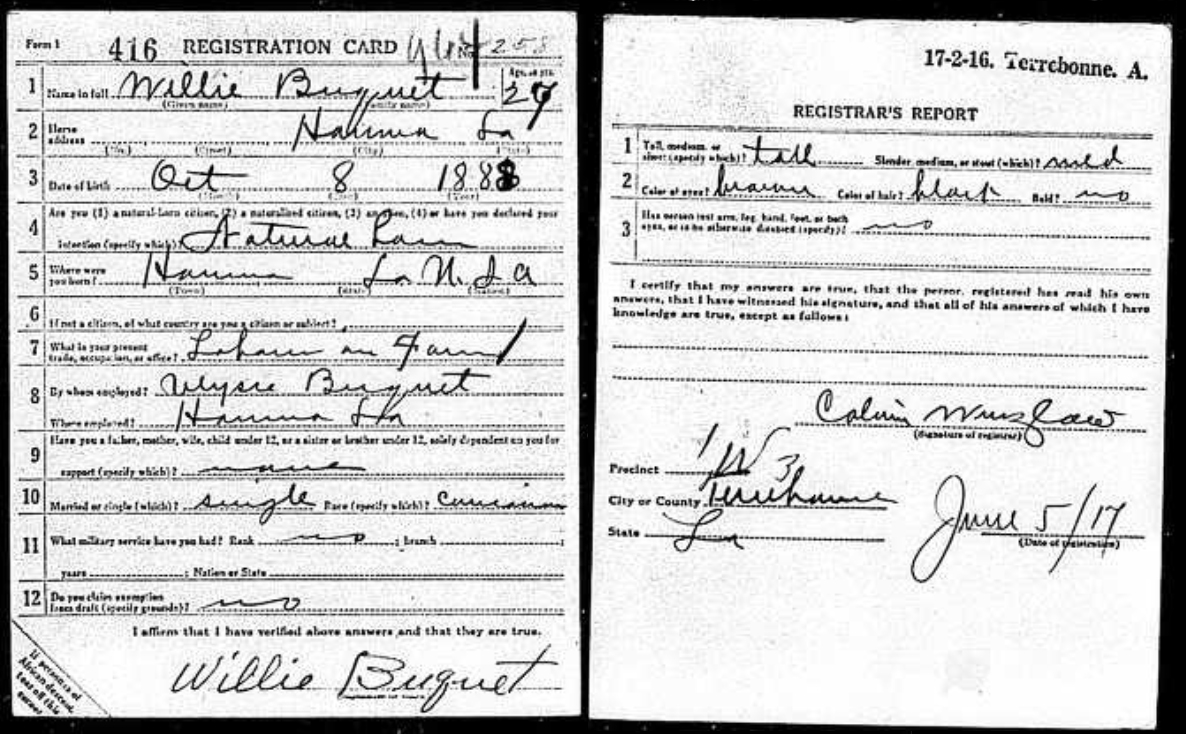 Form 1 416 REGISTRATION CARD No. 258
1 Name in full Willie Buquet Age, in yrs.
(Given name) (Family name) 29
2 Home address Houma La
(No.) (Street) (City) (State)
3 Date of birth Oct 8 1888
(Month) (Day) (Year)
4 Are you (1) a natural-born citizen, (2) a naturalized citizen, (3) an alien, (4) or have you declared your
intention (specify which)? Natural born
5 Where were you born? Houma La U.S.A
(Town) (State) (Nation)
6 If not a citizen, of what country are you a citizen or subject?
7 What is your present trade, occupation, or office? Laborer on Farm
8 By whom employed? Ulysse Buquet
Where employed? Houma La
9 Have you a father, mother, wife, child under 12, or a sister or brother under 12, solely dependent on you for
support (specify which)? none
10 Married or single (which)? single Race (specify which)? Caucasian
11 What military service have you had? Rank no ; branch ;
years ; Nation or State
12 Do you claim exemption from draft (specify grounds)? no
I affirm that I have verified above answers and that they are true.
Willie Buquet
If person is of
African descent,
tear off this
corner
17-2-16. Terrebonne. A.
REGISTRAR'S REPORT
1 Tall, medium, or short (specify which)? tall Slender, medium, or stout (which)? med
2 Color of eyes? brown Color of hair? black Bald? no
3 Has person lost arm, leg, hand, foot, or both
eyes, or is he otherwise disabled (specify)? no
I certify that my answers are true, that the person registered has read his own
answers, that I have witnessed his signature, and that all of his answers of which I have
knowledge are true, except as follows:
Calvin Wurzlow
(Signature of registrar)
Precinct 1 W 3
City or County Terrebonne
State La
June 5/17
(Date of registration)